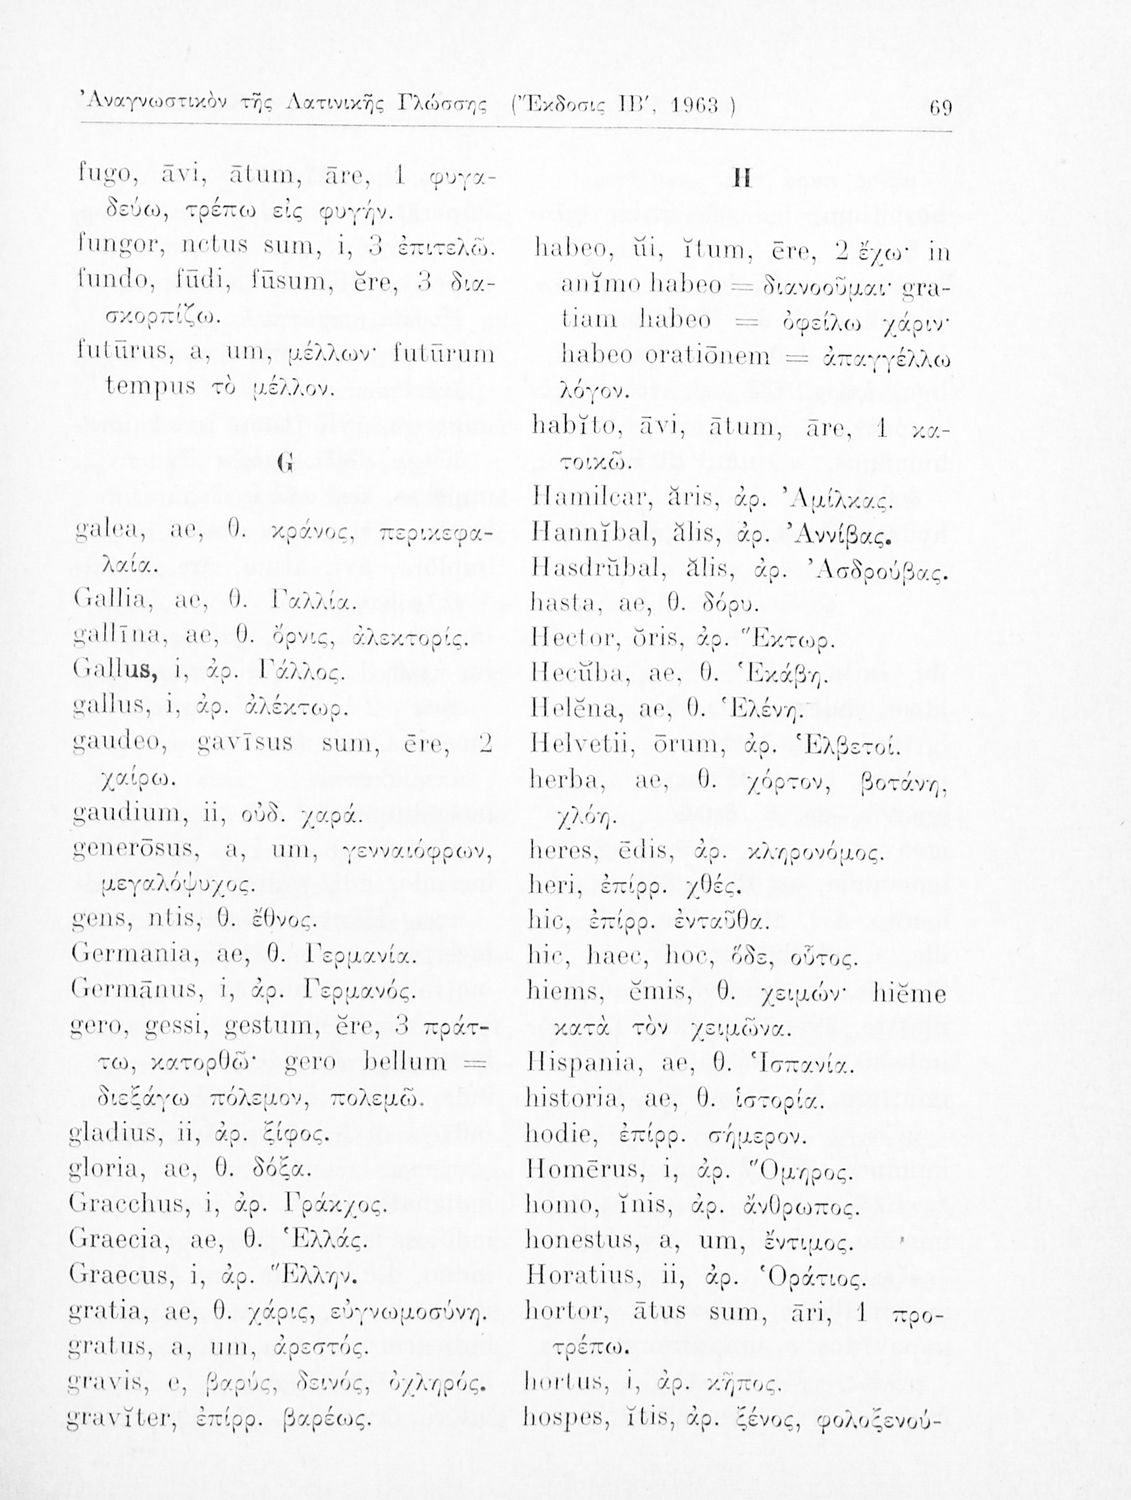 Ἀναγνωστικὸν τῆς Λατινικῆς Γλώσσης (Ἔκδοσις ΙΒ΄, 1963 ) 69
fugo, āvi, ātum, āre, 1 φυγα-
δεύω, τρέπω εἰς φυγήν.
fungor, nctus sum, i, 3 ἐπιτελῶ.
fundo, fūdi, fūsum, ĕre, 3 δια-
σκορπίζω.
futūrus, a, um, μέλλων· futūrum
tempus τὸ μέλλον.
G
galea, ae, θ. κράνος, περικεφα-
λαία.
Gallia, ae, θ. Γαλλία.
gallīna, ae, θ. ὄρνις, ἀλεκτορίς.
Gallus, i, ἀρ. Γάλλος.
gallus, i, ἀρ. ἀλέκτωρ.
gaudeo, gavīsus sum, ēre, 2
χαίρω.
gaudium, ii, οὐδ. χαρά.
generōsus, a, um, γενναιόφρων,
μεγαλόψυχος.
gens, ntis, θ. ἔθνος.
Germania, ae, θ. Γερμανία.
Germānus, i, ἀρ. Γερμανός.
gero, gessi, gestum, ĕre, 3 πράτ-
τω, κατορθῶ· gero bellum =
διεξάγω πόλεμον, πολεμῶ.
gladius, ii, ἀρ. ξίφος.
gloria, ae, θ. δόξα.
Gracchus, i, ἀρ. Γράκχος.
Graecia, ae, θ. Ἑλλάς.
Graecus, i, ἀρ. Ἕλλην.
gratia, ae, θ. χάρις, εὐγνωμοσύνη.
gratus, a, um, ἀρεστός.
gravis, e, βαρύς, δεινός, ὀχληρός.
gravĭter, ἐπίρρ. βαρέως.
H
habeo, ŭi, ĭtum, ēre, 2 ἔχω· in
anĭmo habeo = διανοοῦμαι· gra-
tiam habeo = ὀφείλω χάριν·
habeo oratiōnem = ἀπαγγέλλω
λόγον.
habĭto, āvi, ātum, āre, 1 κα-
τοικῶ.
Hamilcar, ăris, ἀρ. Ἀμίλκας.
Hannĭbal, ălis, ἀρ. Ἀννίβας.
Hasdrŭbal, ălis, ἀρ. Ἀσδρούβας.
hasta, ae, θ. δόρυ.
Hector, ŏris, ἀρ. Ἕκτωρ.
Hecŭba, ae, θ. Ἑκάβη.
Helĕna, ae, θ. Ἑλένη.
Helvetii, ōrum, ἀρ. Ἑλβετοί.
herba, ae, θ. χόρτον, βοτάνη,
χλόη.
heres, ēdis, ἀρ. κληρονόμος.
heri, ἐπίρρ. χθές.
hic, ἐπίρρ. ἐνταῦθα.
hic, haec, hoc, ὅδε, οὗτος.
hiems, ĕmis, θ. χειμών· hiĕme
κατὰ τὸν χειμῶνα.
Hispania, ae, θ. Ἱσπανία.
historia, ae, θ. ἱστορία.
hodie, ἐπίρρ. σήμερον.
Homērus, i, ἀρ. Ὅμηρος.
homo, ĭnis, ἀρ. ἄνθρωπος.
honestus, a, um, ἔντιμος.
Horatius, ii, ἀρ. Ὁράτιος.
hortor, ātus sum, āri, 1 προ-
τρέπω.
hortus, i, ἀρ. κῆπος.
hospes, ĭtis, ἀρ. ξένος, φολοξενού-